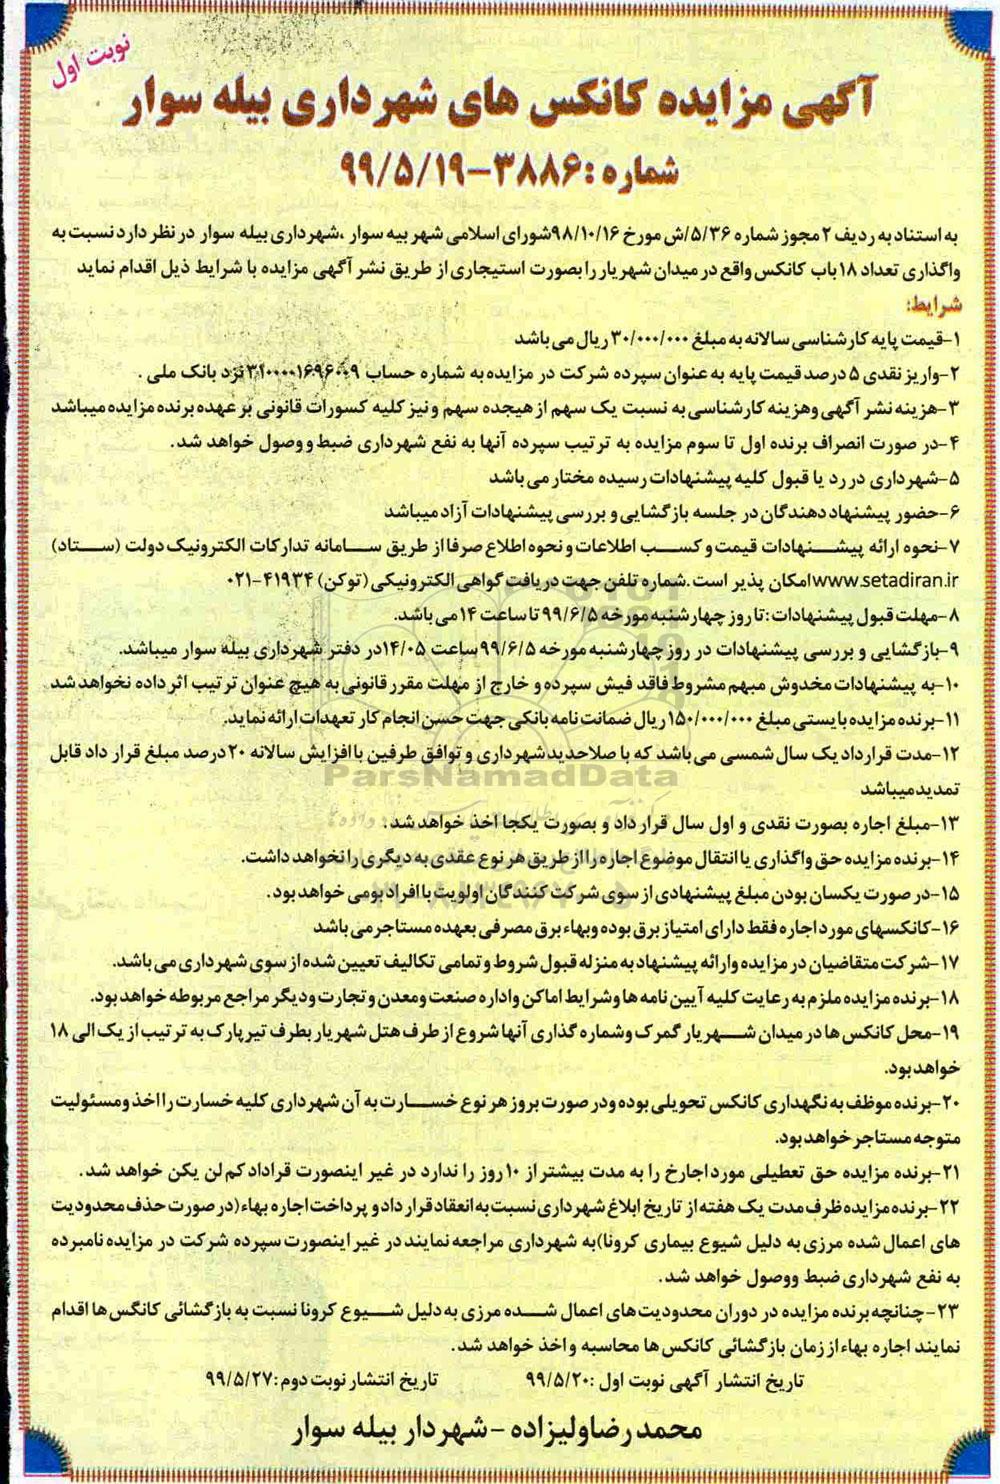 نوبت اول
آگهی مزایده کانکس های شهرداری بیله سوار
شماره :۳۸۸۶-۹۹/۵/۱۹
به استناد به ردیف ۲ مجوز شماره ۵/۳۶/ش مورخ ۹۸/۱۰/۱۶شورای اسلامی شهر بیه سوار ،شهرداری بیله سوار در نظر دارد نسبت به
واگذاری تعداد ۱۸ باب کانکس واقع در میدان شهریار را بصورت استیجاری از طریق نشر آگهی مزایده با شرایط ذیل اقدام نماید
شرایط:
۱-قیمت پایه کارشناسی سالانه به مبلغ ۳۰/۰۰۰/۰۰۰ ریال می باشد
۲-واریز نقدی ۵ درصد قیمت پایه به عنوان سپرده شرکت در مزایده به شماره حساب ۳۱۰۰۰۰۱۶۹۶۰۰۹ نزد بانک ملی .
۳-هزینه نشر آگهی وهزینه کارشناسی به نسبت یک سهم از هیجده سهم و نیز کلیه کسورات قانونی بر عهده برنده مزایده میباشد
۴-در صورت انصراف برنده اول تا سوم مزایده به ترتیب سپرده آنها به نفع شهرداری ضبط و وصول خواهد شد.
۵-شهرداری در رد یا قبول کلیه پیشنهادات رسیده مختار می باشد
۶-حضور پیشنهاد دهندگان در جلسه بازگشایی و بررسی پیشنهادات آزاد میباشد
۷-نحوه ارائه پیشنهادات قیمت و کسب اطلاعات و نحوه اطلاع صرفا از طریق سامانه تدارکات الکترونیک دولت (ستاد)
www.setadiran.ir امکان پذیر است .شماره تلفن جهت دریافت گواهی الکترونیکی (توکن) ۴۱۹۳۴-۰۲۱
۸-مهلت قبول پیشنهادات :تا روز چهارشنبه مورخه ۹۹/۶/۵ تا ساعت ۱۴ می باشد.
۹-بازگشایی و بررسی پیشنهادات در روز چهارشنبه مورخه ۹۹/۶/۵ ساعت ۱۴/۰۵ در دفتر شهرداری بیله سوار میباشد.
۱۰-به پیشنهادات مخدوش مبهم مشروط فاقد فیش سپرده و خارج از مهلت مقرر قانونی به هیچ عنوان ترتیب اثر داده نخواهد شد
۱۱-برنده مزایده بایستی مبلغ ۱۵۰/۰۰۰/۰۰۰ ریال ضمانت نامه بانکی جهت حسن انجام کار تعهدات ارائه نماید.
۱۲-مدت قرارداد یک سال شمسی می باشد که با صلاحدید شهرداری و توافق طرفین با افزایش سالانه ۲۰ درصد مبلغ قرار داد قابل
تمدید میباشد
ParsNamadData
۱۳-مبلغ اجاره بصورت نقدی و اول سال قرار داد و بصورت یکجا اخذ خواهد شد .
۱۴-برنده مزایده حق واگذاری یا انتقال موضوع اجاره را از طریق هر نوع عقدی به دیگری را نخواهد داشت.
۱۵-در صورت یکسان بودن مبلغ پیشنهادی از سوی شرکت کنندگان اولویت با افراد بومی خواهد بود .
۱۶-کانکسهای مورد اجاره فقط دارای امتیاز برق بوده وبهاء برق مصرفی بعهده مستاجر می باشد
۱۷-شرکت متقاضیان در مزایده وارائه پیشنهاد به منزله قبول شروط و تمامی تکالیف تعیین شده از سوی شهرداری می باشد.
۱۸-برنده مزایده ملزم به رعایت کلیه آیین نامه ها وشرایط اماکن واداره صنعت ومعدن و تجارت ودیگر مراجع مربوطه خواهد بود.
۱۹-محل کانکس ها در میدان شهریار گمرک وشماره گذاری آنها شروع از طرف هتل شهریار بطرف تیرپارک به ترتیب از یک الی ۱۸
خواهد بود.
۲۰-برنده موظف به نگهداری کانکس تحویلی بوده ودر صورت بروز هر نوع خسارت به آن شهرداری کلیه خسارت را اخذ ومسئولیت
متوجه مستاجر خواهد بود.
۲۱-برنده مزایده حق تعطیلی مورد اجارخ را به مدت بیشتر از ۱۰ روز را ندارد در غیر اینصورت قراداد کم لن یکن خواهد شد .
۲۲-برنده مزایده ظرف مدت یک هفته از تاریخ ابلاغ شهرداری نسبت به انعقاد قرار داد و پرداخت اجاره بهاء(در صورت حذف محدودیت
های اعمال شده مرزی به دلیل شیوع بیماری کرونا)به شهرداری مراجعه نمایند در غیر اینصورت سپرده شرکت در مزایده نامبرده
به نفع شهرداری ضبط ووصول خواهد شد .
۲۳-چنانچه برنده مزایده در دوران محدودیت های اعمال شده مرزی به دلیل شیوع کرونا نسبت به بازگشائی کانگس ها اقدام
نمایند اجاره بهاء از زمان بازگشائی کانکس ها محاسبه و اخذ خواهد شد.
تاریخ انتشار آگهی نوبت اول :۹۹/۵/۲۰ تاریخ انتشار نوبت دوم :۹۹/۵/۲۷
محمدرضاولیزاده -شهردار بیله سوار